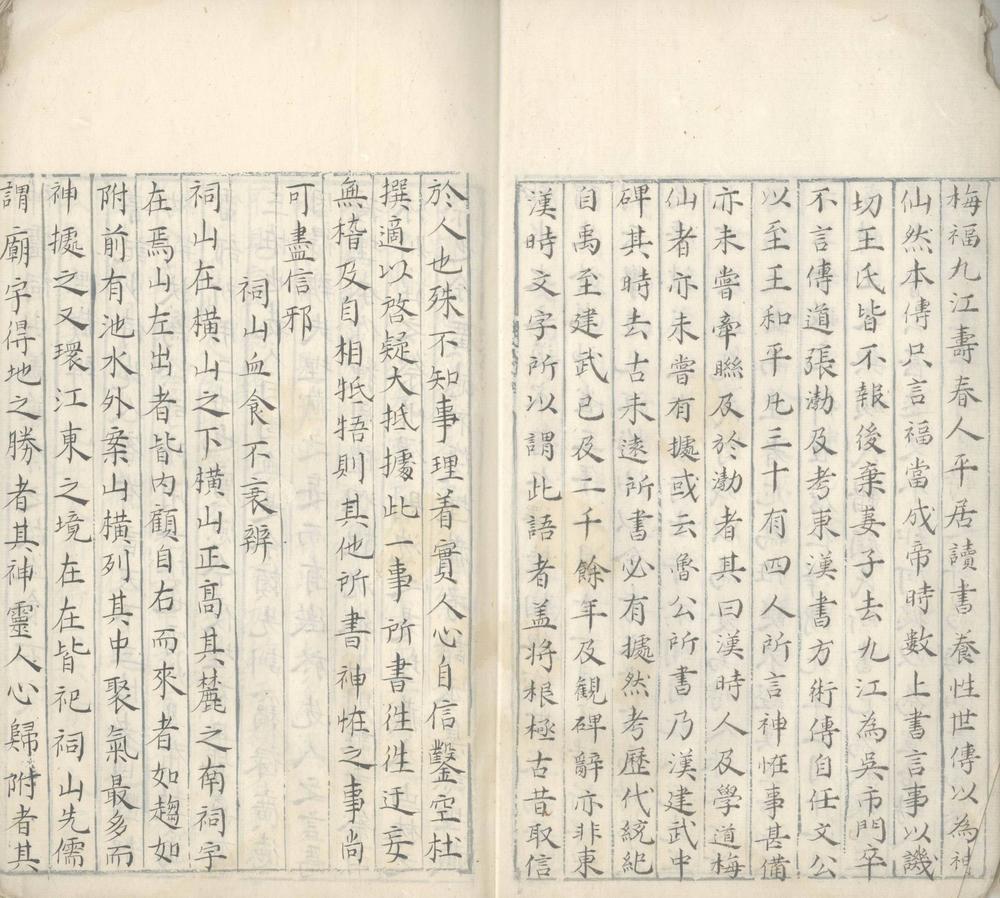 梅福九江壽春人平居讀書養性世傳以為神
仙然本傳只言福當成帝時數上書言事以譏
切王氏皆不報後棄妻子去九江為吳市門卒
不言傳道張渤及考東漢書方術傳自任文公
以至王和平凢三十有四人所言神恠事甚備
亦未嘗牽聮及於渤者其曰漢時人及學道梅
仙者亦未嘗有㨿或云魯公所書乃漢建武中
碑其時去古未遠所書必有㨿然考歷代統紀
自禹至建武已及二千餘年及観碑辭亦非東
漢時文字所以謂此語者盖將根極古昔取信
於人也殊不知事理着實人心自信鑿空杜
撰適以啓疑大抵㨿此一事所書徃徃迂妄
無稽及自相牴牾則其他所書神恠之事尚
可盡信邪
祠山血食不衰辨
祠山在横山之下横山正高其麓之南祠宇
在焉山左出者皆内顧自右而來者如趨如
附前有池水外案山横列其中聚氣最多而
神㨿之又環江東之境在在皆祀祠山先儒
謂廟宇得地之勝者其神靈人心歸附者其